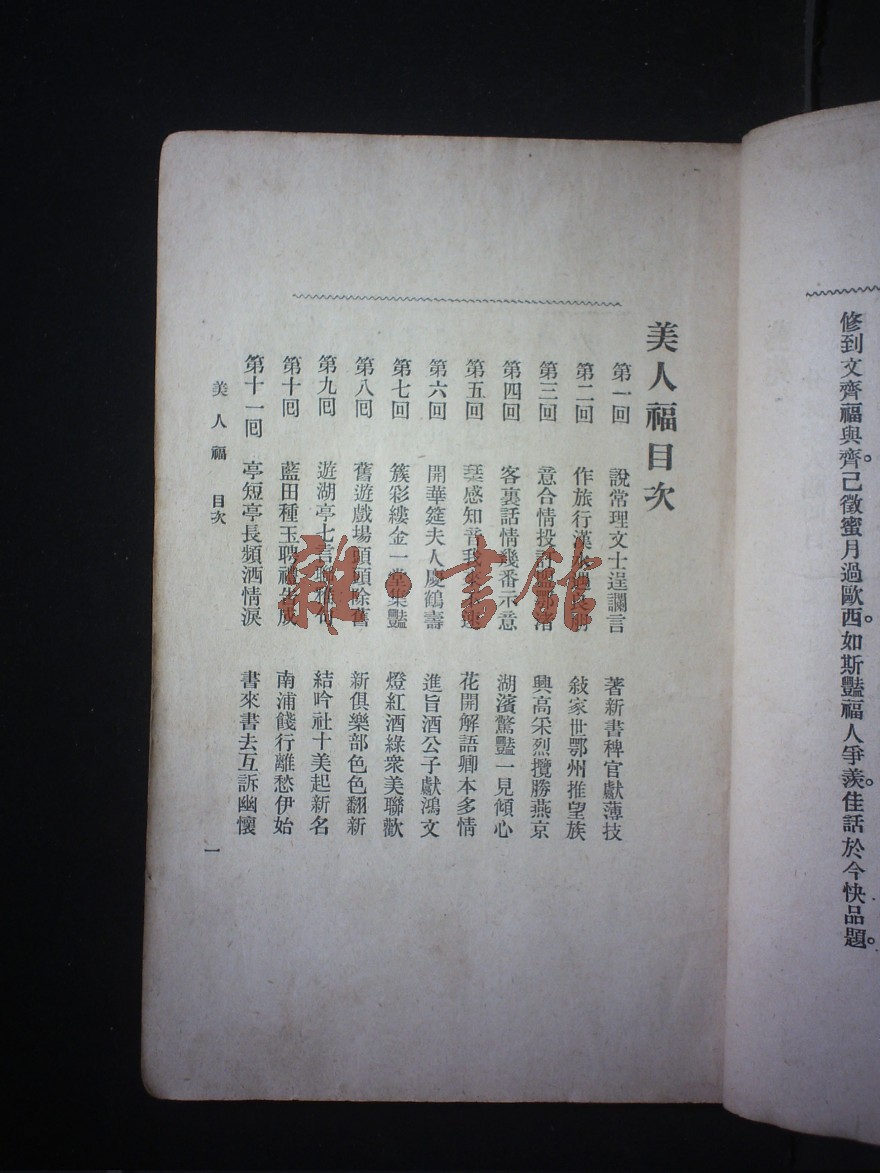 修到文齊福與齊。己徵蜜月過歐西。如斯豔福人爭羨。佳話於今快品題。
美人福目次
第一回 說常理文士逞讕言 著新書稗官獻薄技
第二回 作旅行漢 敍家世鄂州推望族
第三回 意合情投訂 興高采烈攬勝燕京
第四回 客裏話情幾番示意 湖濱驚豔一見傾心
第五回 琹感知音我 花開解語卿本多情
第六回 開華筵夫人慶鶴壽 進旨酒公子獻鴻文
第七回 簇彩縷金一堂集豔 燈紅酒綠衆美聯歡
第八囘 舊遊戲場頭頭除舊 新俱樂部色色翻新
第九囘 遊湖亭七言聯雅句 結吟社十美起新名
第十囘 藍田種玉聘禮告成 南浦餞行離愁伊始
第十一囘 亭短亭長頻洒情淚 書來書去互訴幽懷
美人福 目次
一
雜·書館